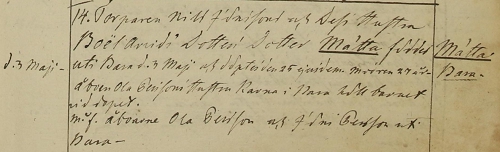 14. Torparen Nills Jönssons och dess Hustru
Boël Arvids Dotters Dotter Mätta födder
d. 3 Maji
uti Bara d. 3 Maji och döptes den 25 ejusdem. modren 27 år
Åboen Ola Perssons Hustru Karna i Bara höll barnet
vid dopet.
m.f. åboerne Ola Persson och Jöns Persson uti
Bara
Mätta
Bara